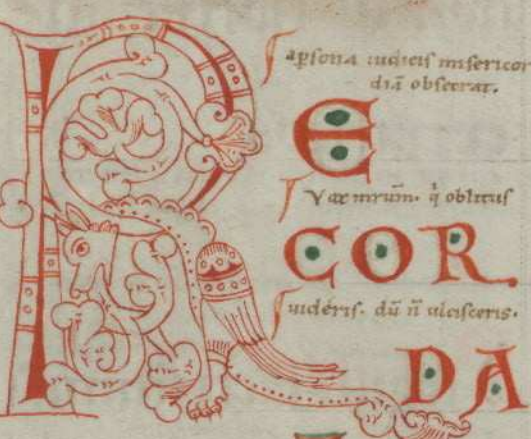 R
aꝑsona iudicis misericor
diā obsecrat.
E
q̇ oblitus
COR
uideris. dū n̄ ulcisceris.
DA